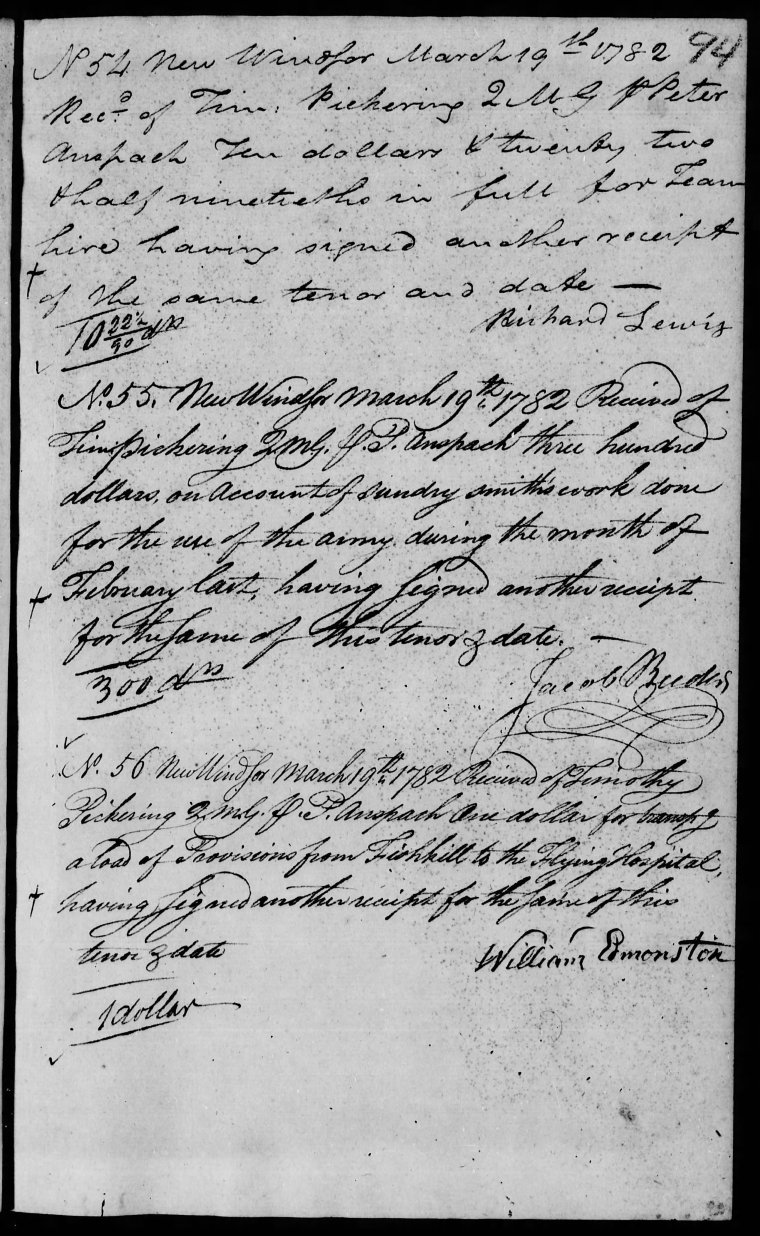 94
No 54 New Windsor March 19th 1782
Recd of Tim: Pickering Q M G ⅌ Peter
Anspach Ten dollars & twenty two
& half ninetieths in full for Team
hire having signed another receipt
of the same tenor and date —
Richard Lewis
10 22½/90 drs
No. 55. New Windsor March 19th 1782 Received of
Tim Pickering QMG. ⅌. P. Anspach three hundred
dollars, on Account of sundry smith's work done
for the use of the army during the month of
February last, having signed another receipt
for the same of this tenor & date. —
300 drs
Jacob
No. 56 New Windsor March 19th 1782 Received of Timothy
Pickering QMG. ⅌. P. Anspach One dollar for transpg
a load of Provisions from Fishkill to the Flying Hospital,
having signed another receipt for the same of this
tenor & date
William Edmonston
1 dollar